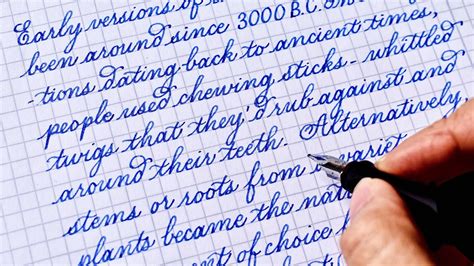 Early versions of
been around since 3000 B.C. In
-tions dating back to ancient times,
people used chewing sticks - whittled
twigs that they'd rub against and
around their teeth. Alternatively,
stems or roots from
plants became the
of choice